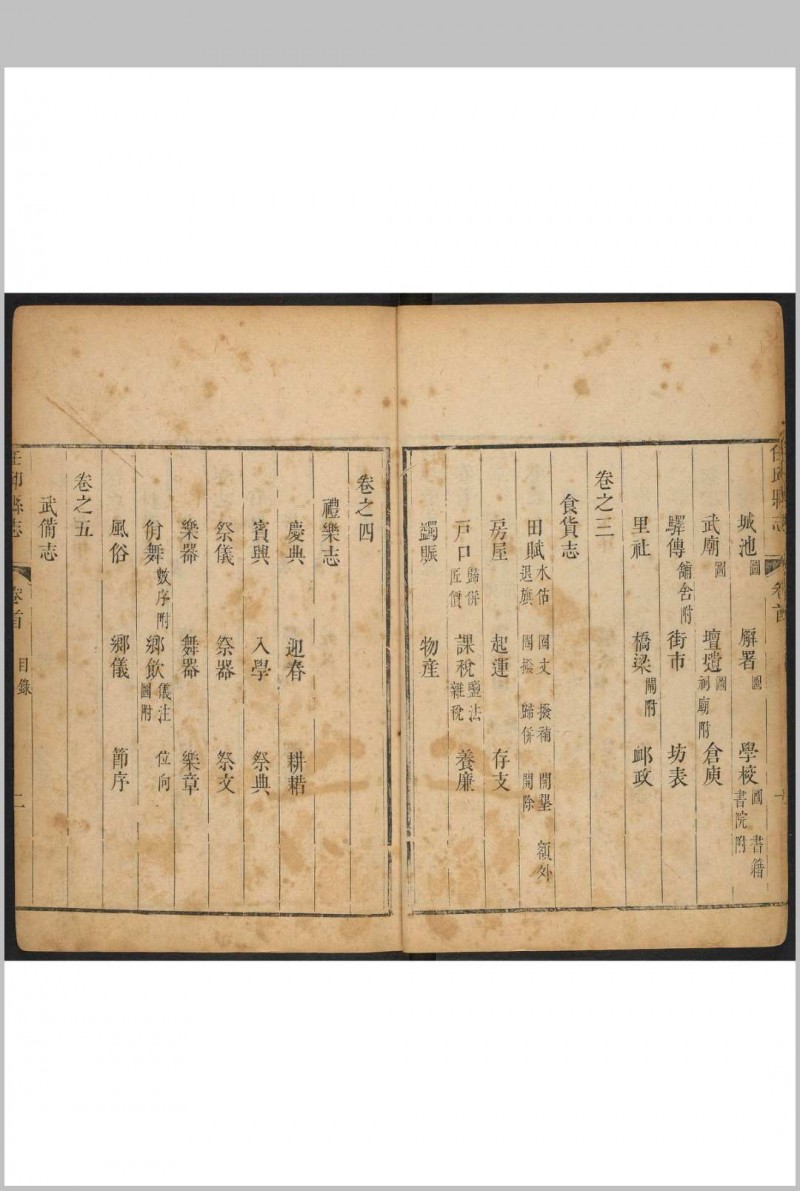 任邱縣志 卷首
城池圖 廨署圖 學校圖 書籍 書院附
武廟圖 壇壝圖 祠廟附 倉庾
驛傳舖舍附 街市 坊表
里社 橋梁閘附 郵政
卷之三
食貨志
田賦水佔 圈丈 撥補 開墾 額外 退旗 圈撥 歸併 開除
房屋 起運 存支
戶口歸併 匠價 課稅鹽法 雜稅 養廉
蠲賑 物産
卷之四
禮樂志
慶典 迎春 耕耤
賓興 入學 祭典
祭儀 祭器 祭文
樂器 舞器 樂章
佾舞數序附 鄉飲儀注 圖附 位向
風俗 鄉儀 節序
卷之五
武備志
任邱縣志 卷首 目錄 二